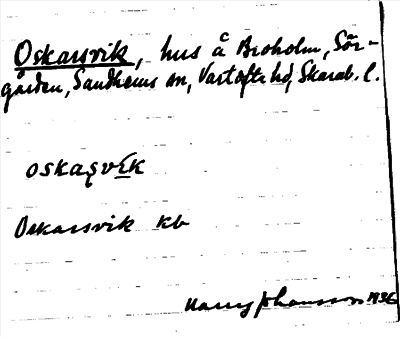 Oskarsvik, hus å Broholm, Sör-
gården, Sandhems sn, Vartofta hd, Skarab. l.
oskaʂvík
Oskarsvik kb
Harry Johansson 1936